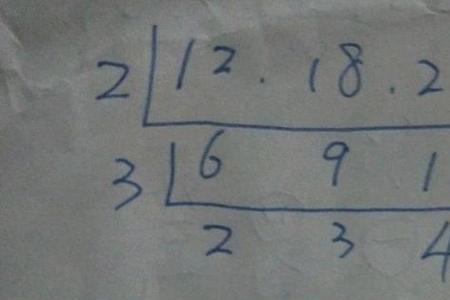 2 12 . 18 . 2
3 6 9 1
2 3 4